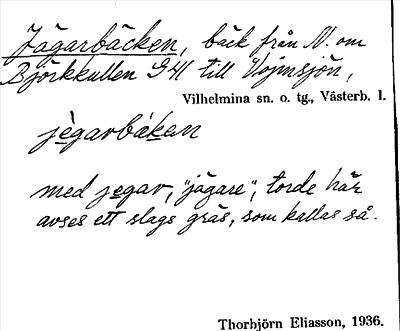 Jägarbäcken, bäck från N. om
Björkkullen G41 till Vojmsjön,
Vilhelmina sn. o. tg., Västerb. l.
jègarbákan
med jegar, "jägare", torde här
avses ett slags gräs, som kallas så.
Thorbjörn Eliasson, 1936.